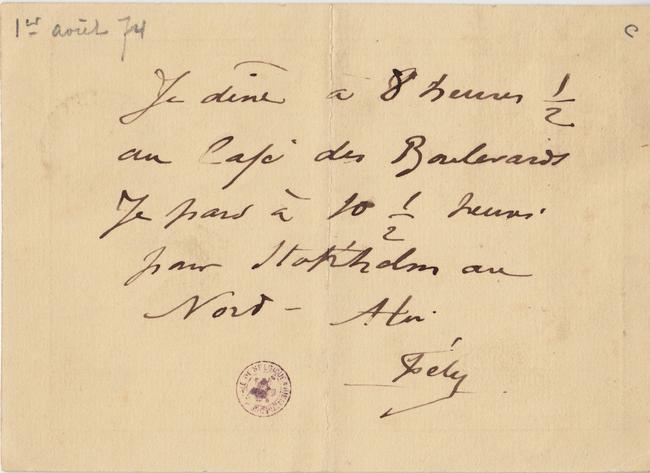 1er août 74
C
Je dine à 8 heures 1/2
au Café des Boulevards
Je pars à 10 1/2 heures
pour Stokholm au
Nord - 
Fély